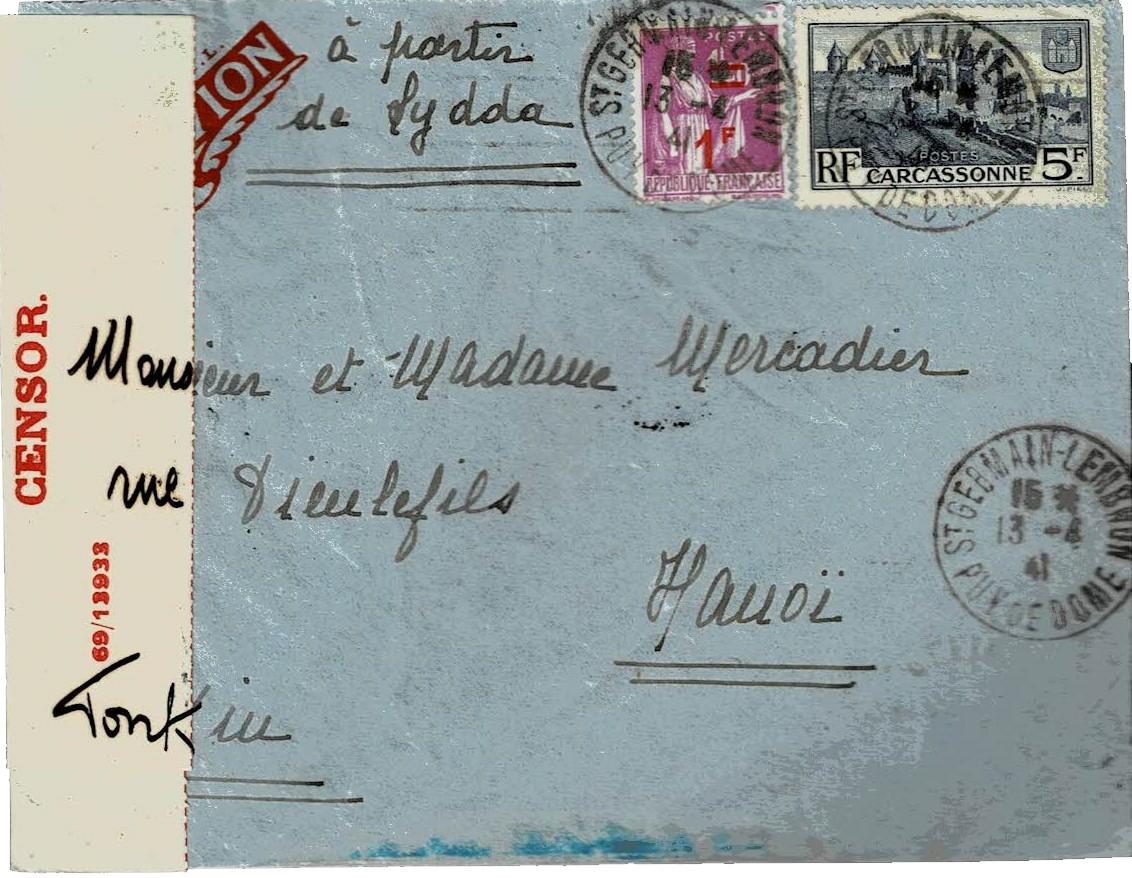 ION
à partir
de Lydda
POSTES
1F
REPUBLIQUE-FRANÇAISE
ST GERMAIN-LEMBRON
15
13 -4
41
RF POSTES 5F
CARCASSONNE
ST GERMAIN-LEMBRON
PUY DE DOME
CENSOR.
69/13933
Monsieur et Madame Mercadier
rue Dieulefils
Hanoï
Tonkin
ST GERMAIN-LEMBRON
15
13 -4
41
PUY DE DOME